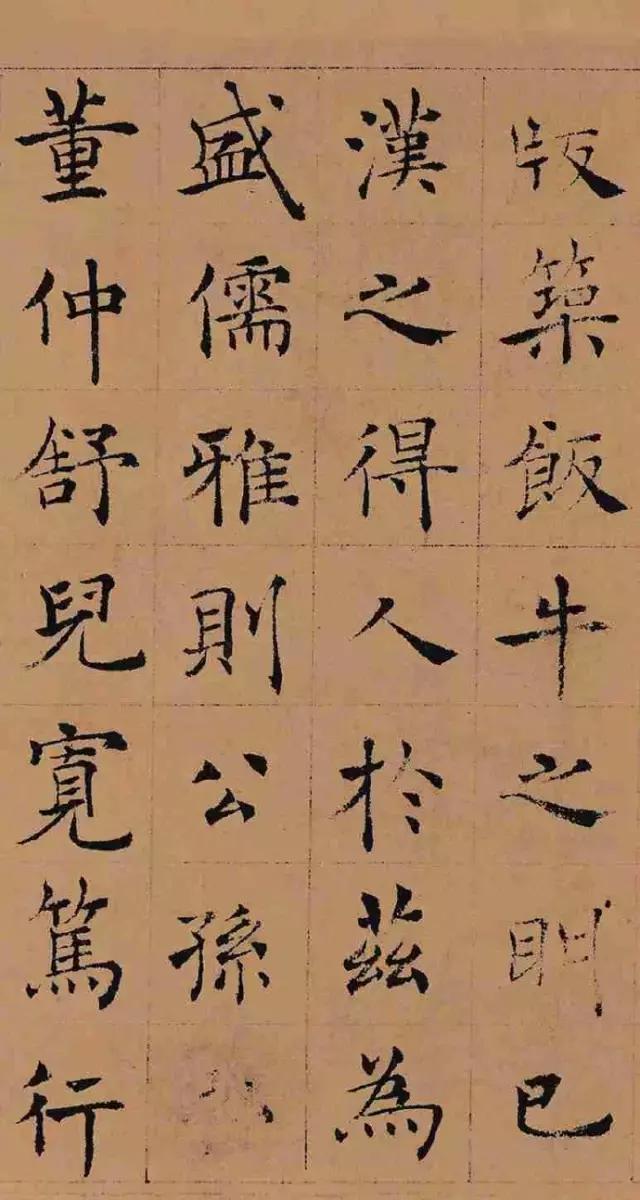 版築飯牛之已
漢之得人於茲為
盛儒雅則公孫
董仲舒兒寬篤行